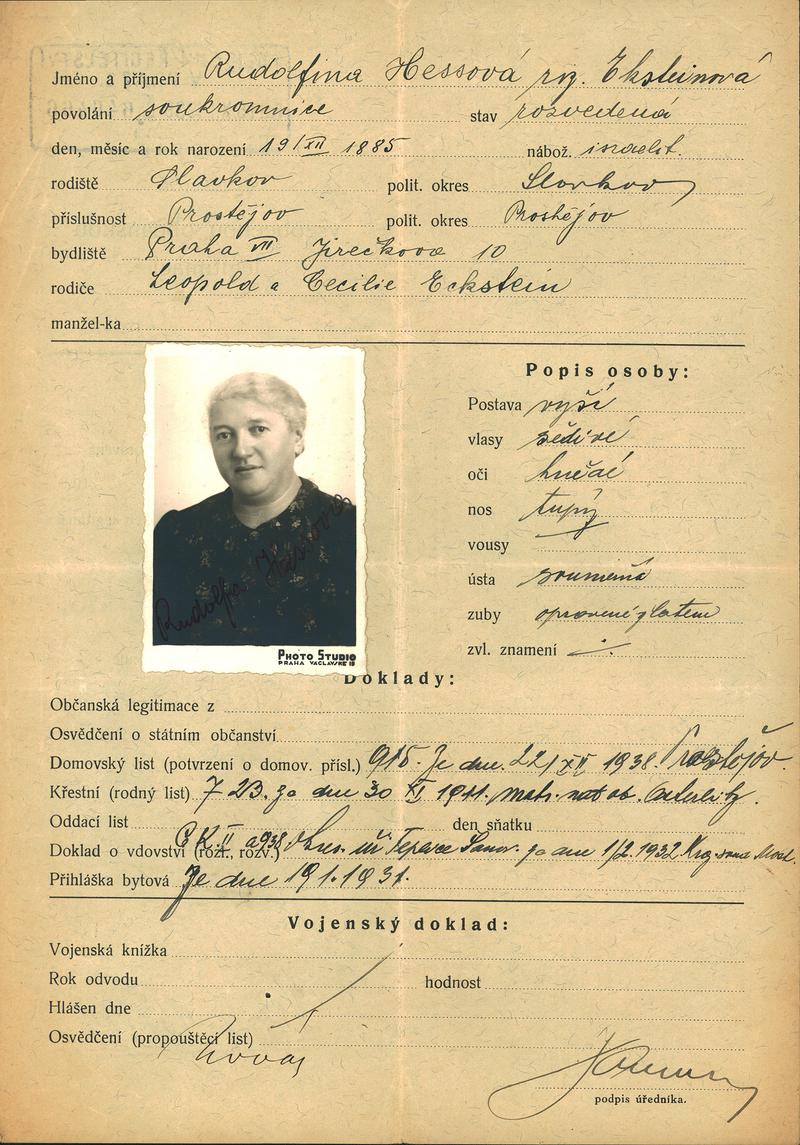 Jméno a příjmení Rudolfina Hessová roz. Eksteinová
povolání soukromnice stav rozvedená
den, měsíc a rok narození 19/XII 1885 nábož. israelit.
rodiště Slavkov polit. okres Slavkov
příslušnost Prostějov polit. okres Prostějov
bydliště Praha VII Jirečkova 10
rodiče Leopold a Cecilie Eckstein
manžel-ka
Popis osoby:
Postava vyší
vlasy šedivé
oči hnědé
nos tupý
vousy
ústa souměrná
zuby opravené zlatem
zvl. znamení
Rudolfa Hessova
PHOTO STUDIO
PRAHA VÁCLAVSKÉ
Doklady:
Občanská legitimace z
Osvědčení o státním občanství
Domovský list (potvrzení o domov. přísl.) 915. Je dne. 22/XII 1938. Prostějov.
Křestní (rodný list) 723. ze dne 30 XI 1911. mat. Austerlitz.
Oddací list den sňatku
Doklad o vdovství (rozl., rozv.) ze dne 1/2. 1932
Přihláška bytová Je dne 19.1.1931.
Vojenský doklad:
Vojenská knížka
Rok odvodu hodnost
Hlášen dne
Osvědčení (propouštěcí list)
podpis úředníka.